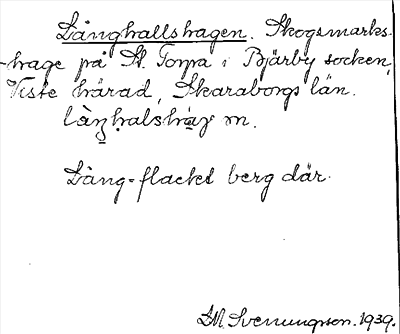 Långhallshagen. Skogsmarks-
hage på St. Torpa i Bjärby socken,
Viste härad, Skaraborgs län.
làŋhalshàɣ m.
Lång-flacket berg där.
D.M. Svenungsson. 1939.